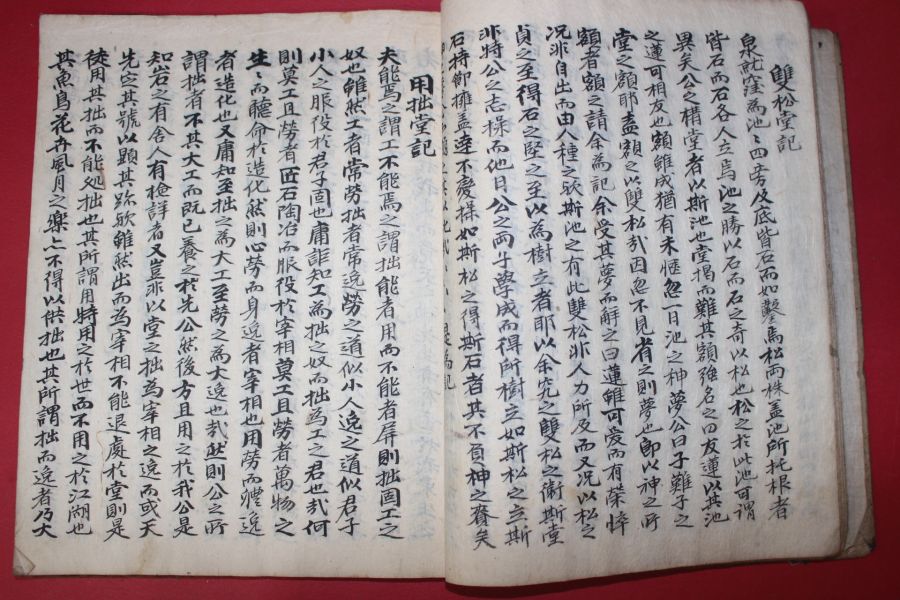 雙松堂記
泉訧窪為池〻四旁及底皆石而如鑿焉松两株盖池所托根者
皆石而石各人立焉池之勝以石而石之奇以松也松之於此池可謂
異矣公之構堂者以斯池也堂揭而難其額強名之曰友蓮以其池
之蓮可相友也額雖成猶有未愜忽一日池之神夢公曰子難子之
堂之額耶盍額之以雙松哉因忽不見省之則夢也卽以神之所
額者額之請余為記余受其夢而觧之曰蓮雖可愛而有荣悴
况非自出而由人種之欤斯池之有此雙松非人力所及而又况以松之
貞之至得石之堅之至以為樹立者耶以余究之雙松之衛斯堂
非特公之志操而他日公之両子學成而得所樹立如斯松之立斯
石持節擁盖逹不变操如斯松之得斯石者其不負神之賚矣
用拙堂記
夫能焉之謂工不能焉之謂拙能者用而不能者屏則拙固工之
奴也雖然工者常勞拙者常逸勞之道似小人逸之道似君子
小人之服役於君子固也庸詎知工為拙之奴而拙為工之君也哉何
則莫工且勞者匠石陶冶而服役於宰相莫工且勞者萬物之
生〻而聽命於造化然則心勞而身逸者宰相也用勞而軆逸
者造化也又庸知至拙之為大工至勞之為大逸也哉然則公之所
謂拙者不其大工而既已養之於先公然後方且用之於我公是
知岩之有舍人有檢詳者又豈乖以堂之拙為宰相之逸而或天
先定其號以顕其跡欤雖然出而為宰相不能退處於堂則是
徒用其拙而不能処拙也其所謂用特用之於世而不用之於江湖也
其魚鳥花卉風月之樂亡不得以供拙也其所謂拙而逸者乃大